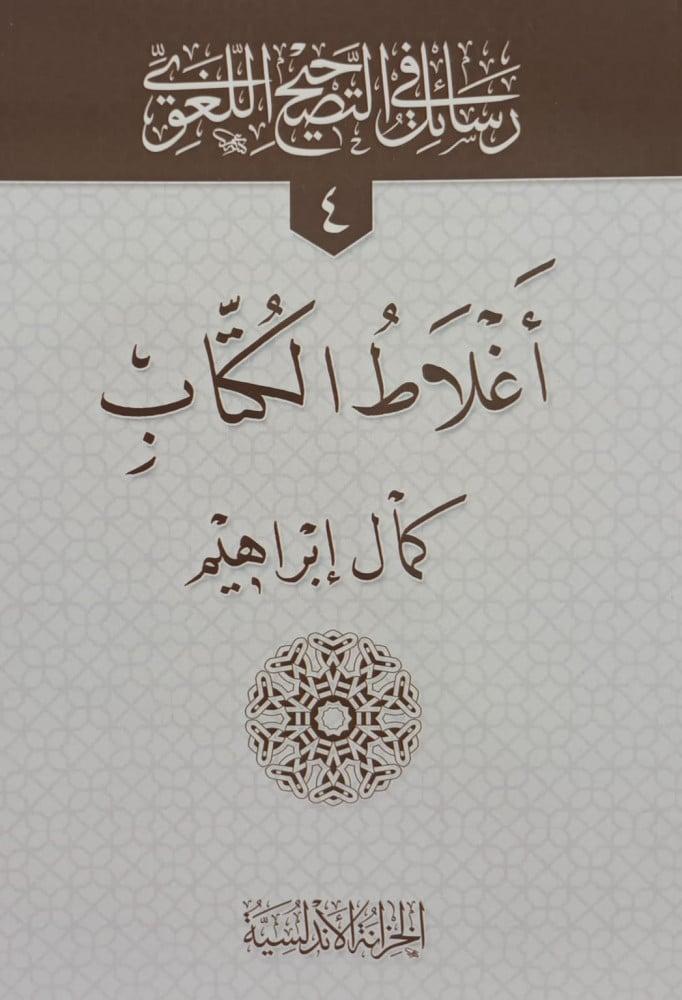 رسائل في التصحيح اللغوي
٤
أَغْلَاطُ الكُتَّابِ
كمال إبراهيم
الخزانة الأندلسية